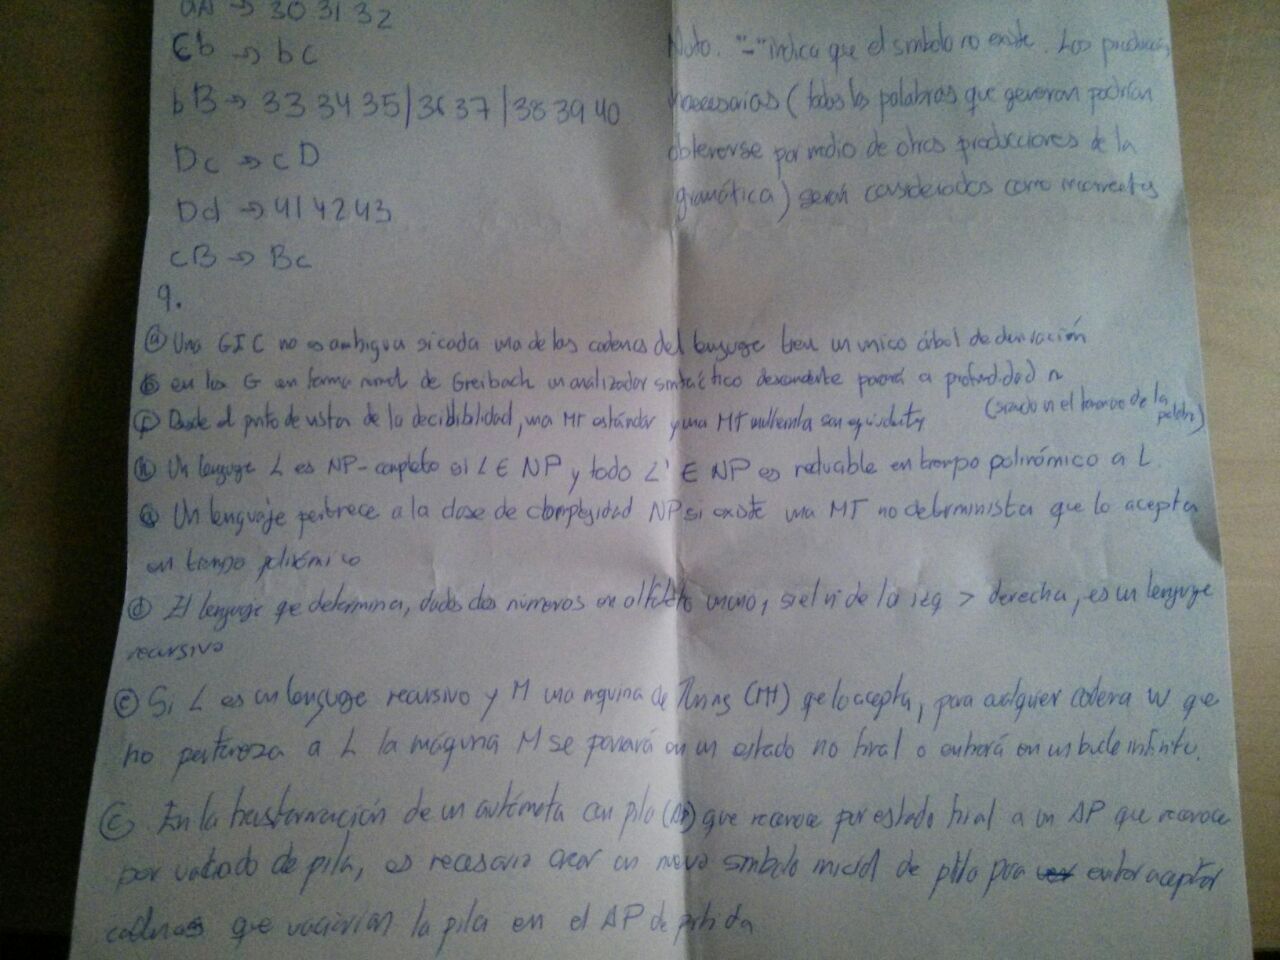 aA → 30 31 32
Cb → bC
bB → 33 34 35 | 36 37 | 38 39 40
Dc → cD
Dd → 41 42 43
cB → Bc
Nota. "-" indica que el símbolo no existe. Las produccións
necesarias (todas las palabras que generan podrían
obtenerse por medio de otras producciones de la
gramática) serán considerados como incorrectas
9.
ⓐ Una GIC no es ambigua si cada una de las cadenas del lenguaje tiene un único árbol de derivación
ⓑ en las G en forma normal de Greibach un analizador sintáctico descendente parará a profundidad n
(siendo n el tamaño de la
palabra)
Desde el punto de vista de la decibibilidad, una MT estándar y una MT multicinta son equivalentes
ⓗ Un lenguaje L es NP-completo si L ∈ NP y todo L' ∈ NP es reducible en tiempo polinómico a L.
Un lenguaje pertenece a la clase de complejidad NP si existe una MT no determinista que lo acepta
en tiempo polinómico
ⓓ El lenguaje que determina, dados dos números en alfabeto unario, si el nº de la izq > derecha, es un lenguaje
recursivo
ⓔ Si L es un lenguaje recursivo y M una máquina de Turing (MT) que lo acepta, para cualquier cadena w que
no pertenezca a L la máquina M se parará en un estado no final o entrará en un bucle infinito.
ⓒ En la trasformación de un autómata con pila (AP) que reconoce por estado final a un AP que reconoce
por vaciado de pila, es necesario crear un nuevo símbolo inicial de pila para evitar aceptar
cadenas que vaciarían la pila en el AP de partida